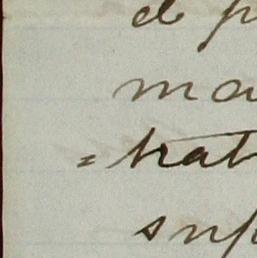 de p
ma
=trat
sup